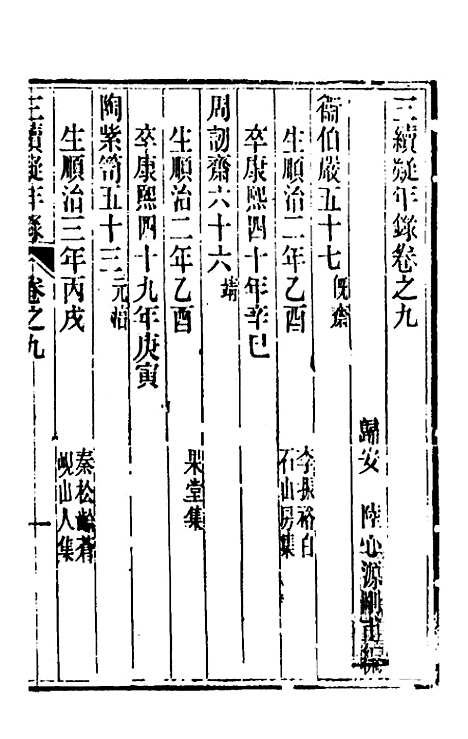 三續疑年錄卷之九
歸安 陸心源剛甫編
衞伯嚴五十七 既齋
生順治二年乙酉 李振裕白石山房集
卒康熙四十年辛巳
周訒齋六十六 靖
生順治二年乙酉 果堂集
卒康熙四十九年庚寅
陶紫笥五十三 元淳
生順治三年丙戌 秦松齡蒼峴山人集
三續疑年錄 卷之九 一